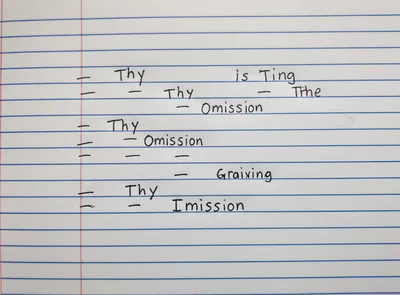 — Thy is Ting
— — Thy — Tthe
— Omission
— Thy
— — Omission
— — —
— Graiving
— Thy
— — Imission